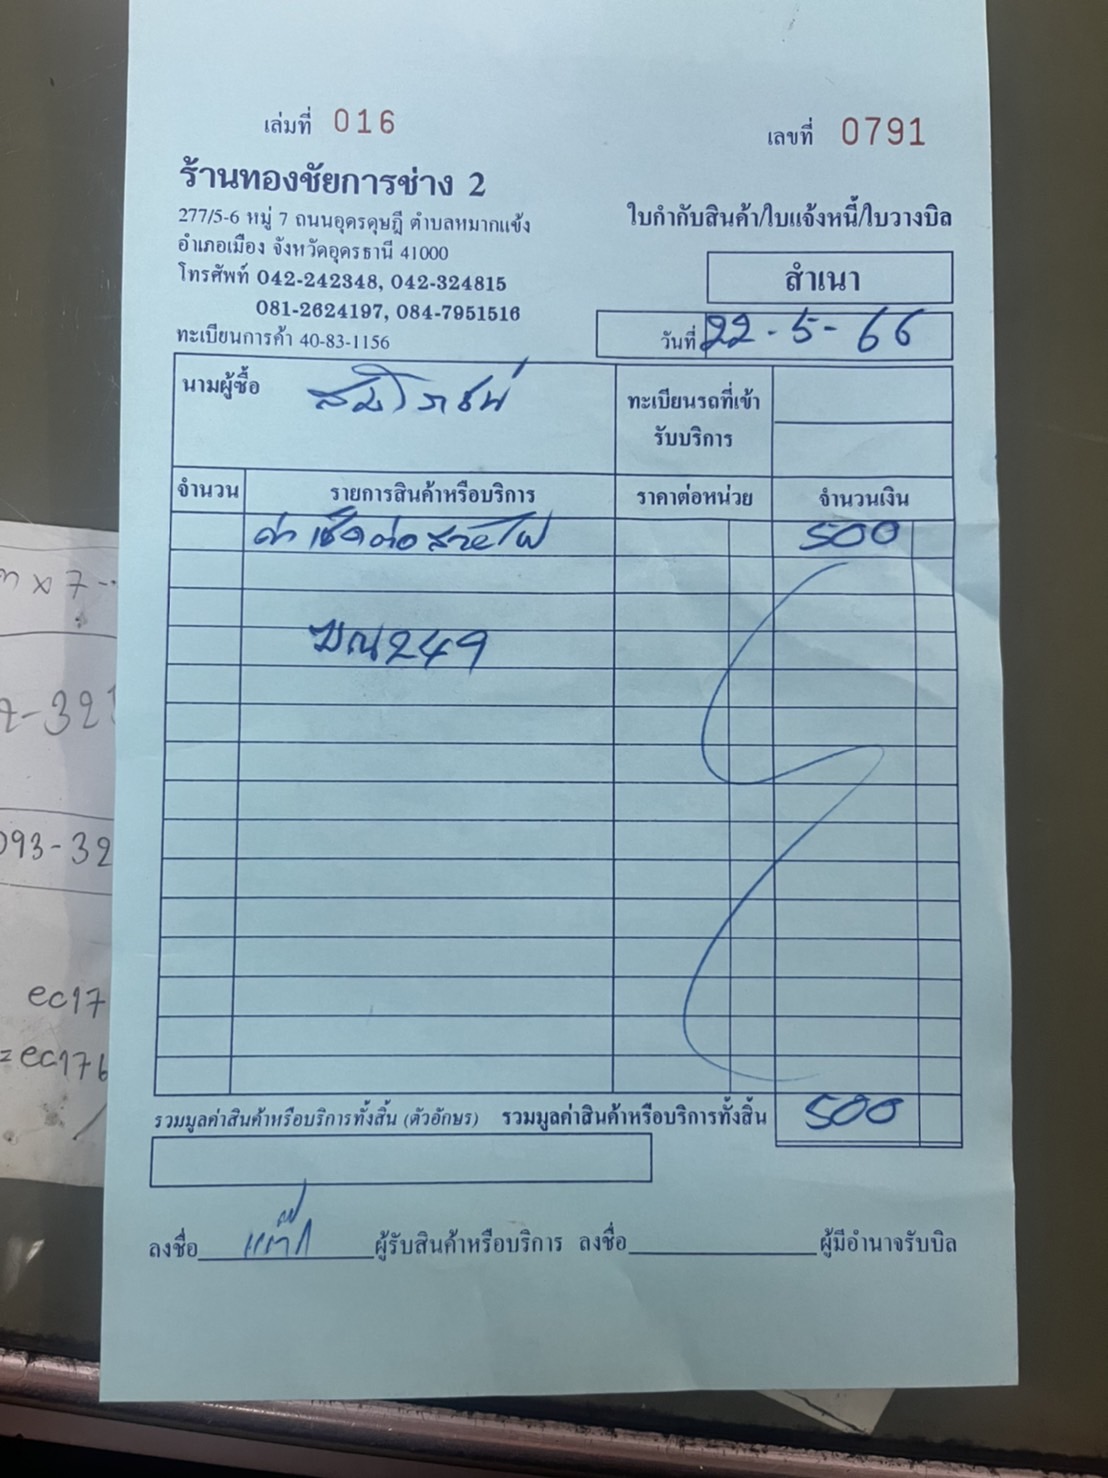 เล่มที่ 016
เลขที่ 0791
ร้านทองชัยการช่าง 2
277/5-6 หมู่ 7 ถนนอุดรดุษฎี ตำบลหมากแข้ง
อำเภอเมือง จังหวัดอุดรธานี 41000
โทรศัพท์ 042-242348, 042-324815
081-2624197, 084-7951516
ทะเบียนการค้า 40-83-1156
ใบกำกับสินค้า/ใบแจ้งหนี้/ใบวางบิล
สำเนา
วันที่ 22-5-66
นามผู้ซื้อ
ทะเบียนรถที่เข้า
รับบริการ
จำนวน รายการสินค้าหรือบริการ ราคาต่อหน่วย จำนวนเงิน
ค่าเช็คต่อสายไฟ 500
249
รวมมูลค่าสินค้าหรือบริการทั้งสิ้น (ตัวอักษร) รวมมูลค่าสินค้าหรือบริการทั้งสิ้น 500
ลงชื่อ ผู้รับสินค้าหรือบริการ ลงชื่อ ผู้มีอำนาจรับบิล
n x 7
-32
093-32
ec17
=ec176